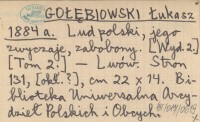 GOŁĘBIOWSKI Łukasz
1884 a. Lud polski, jego
zwyczaje, zabobony. [Wyd. 2.]
[Tom 2.] — Lwów. Stron
131, [okł. ?], cm 22 x 14. Bi-
blioteka Uniwersalna Arcy-
dzieł Polskich i Obcych